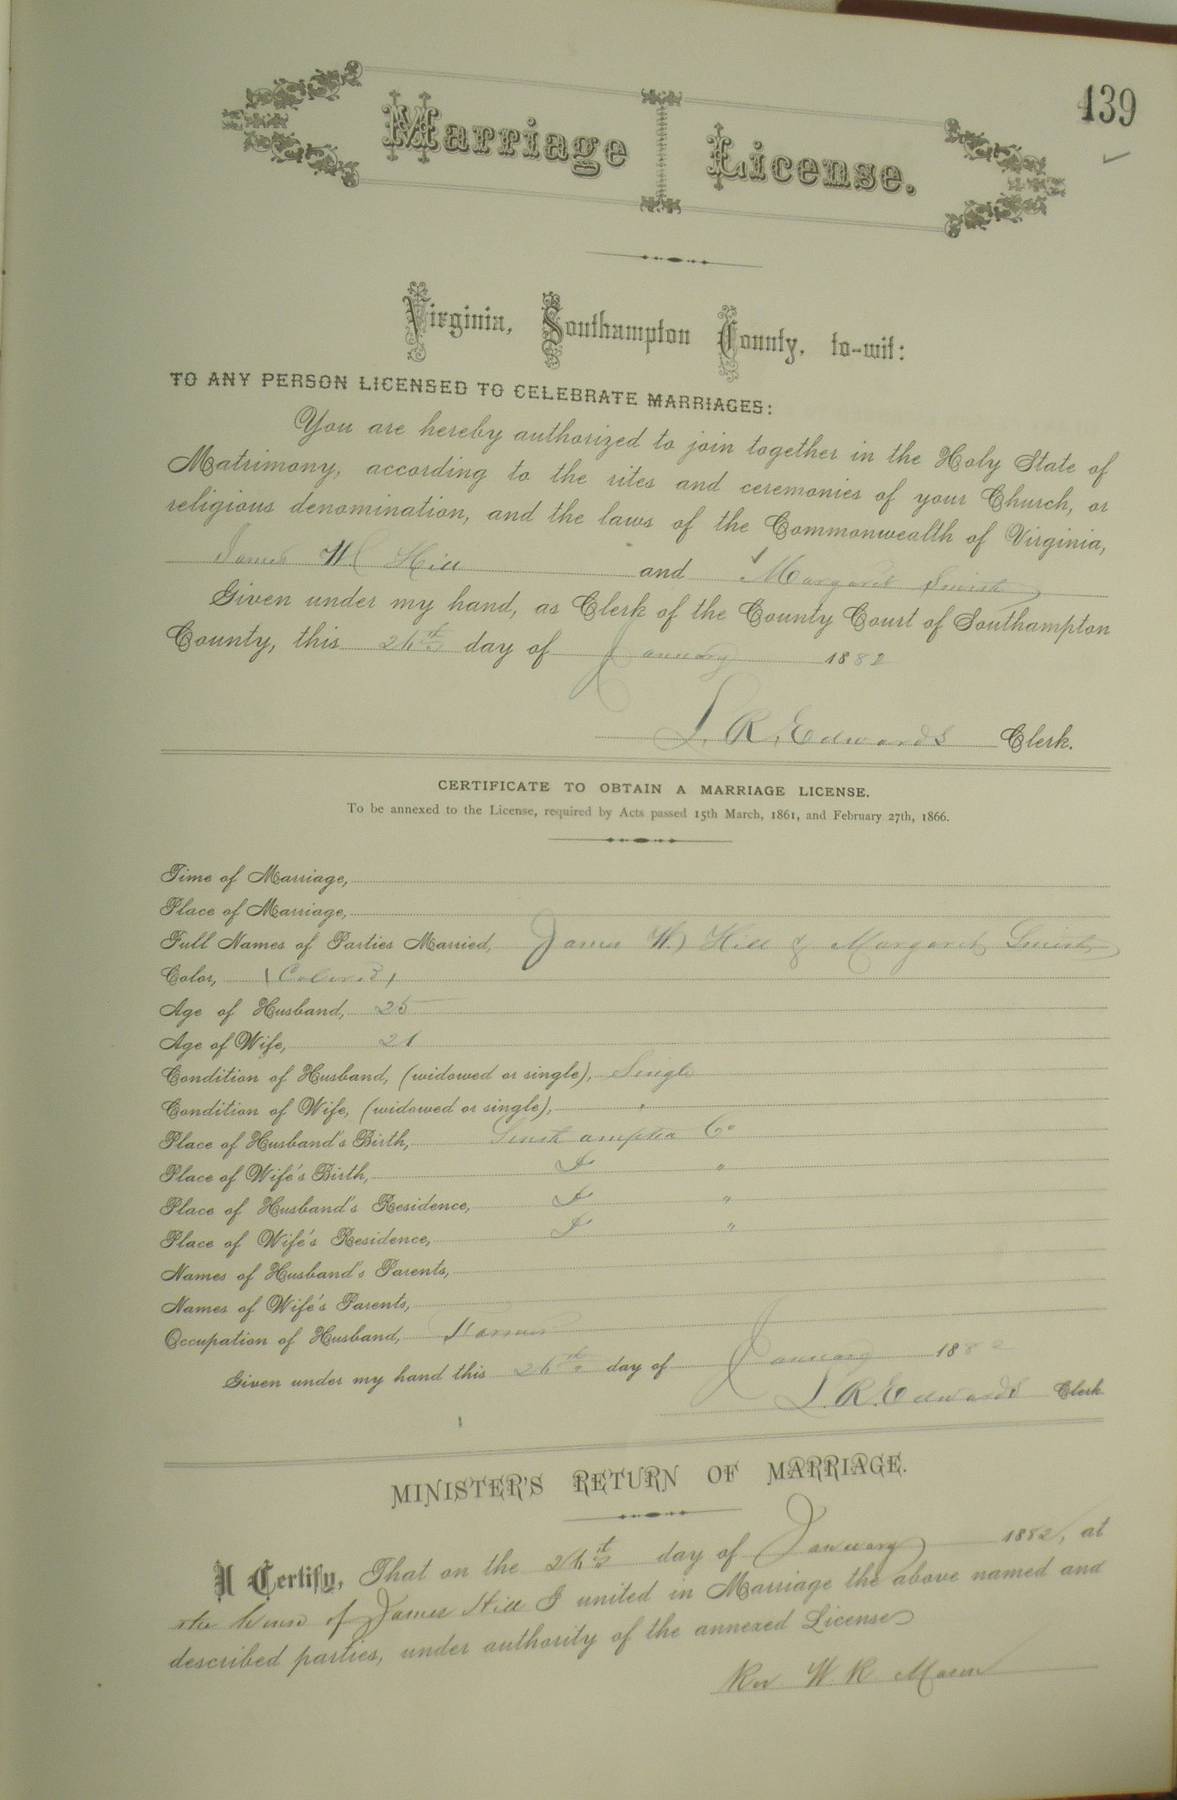 139
Marriage License.
Virginia, Southampton County, to-wit:
TO ANY PERSON LICENSED TO CELEBRATE MARRIAGES:
You are hereby authorized to join together in the Holy State of
Matrimony, according to the rites and ceremonies of your Church, or
religious denomination, and the laws of the Commonwealth of Virginia,
James W Hill and Margaret
Given under my hand, as Clerk of the County Court of Southampton
County, this day of January 1882
L. R. Edwards Clerk.
CERTIFICATE TO OBTAIN A MARRIAGE LICENSE.
To be annexed to the License, required by Acts passed 15th March, 1861, and February 27th, 1866.
Time of Marriage,
Place of Marriage,
Full Names of Parties Married, James W. Hill & Margaret
Color, (Colored)
Age of Husband, 25
Age of Wife, 21
Condition of Husband, (widowed or single), Single
Condition of Wife, (widowed or single), "
Place of Husband's Birth, Southampton Co
Place of Wife's Birth, "
Place of Husband's Residence, "
Place of Wife's Residence, "
Names of Husband's Parents,
Names of Wife's Parents,
Occupation of Husband, Farmer
Given under my hand this day of January 1882
L. R. Edwards Clerk
MINISTER'S RETURN OF MARRIAGE.
I Certify, That on the day of January 1882, at
the house of James Hill I united in Marriage the above named and
described parties, under authority of the annexed License
Rev W R